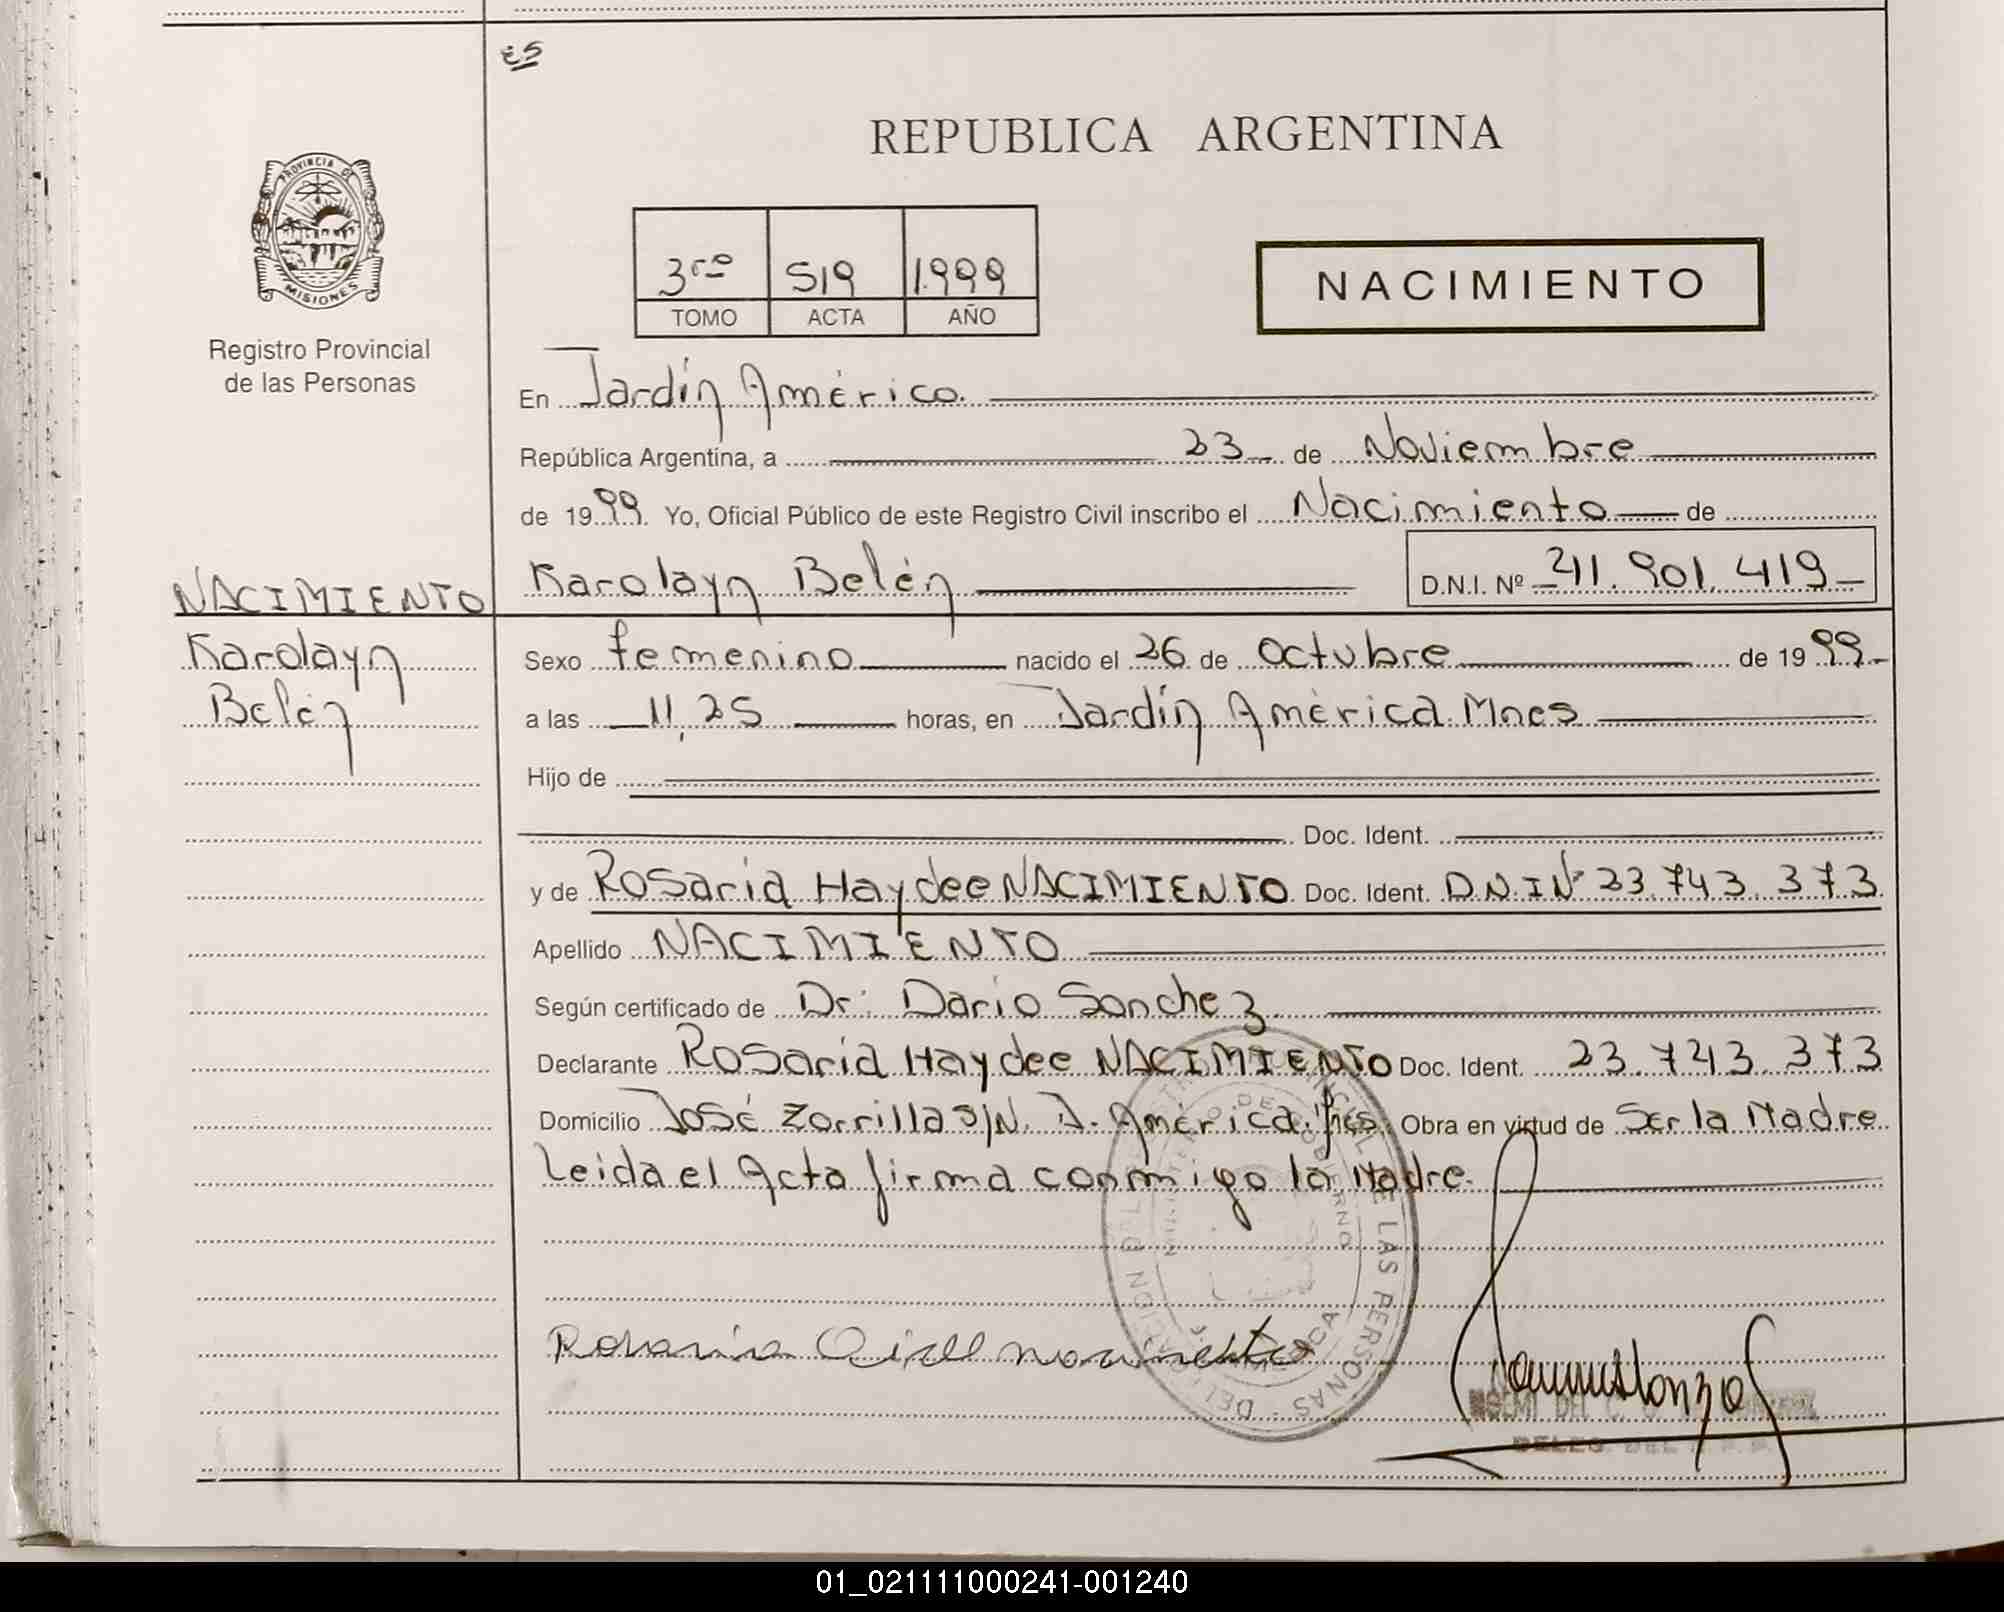 ES
REPUBLICA ARGENTINA
PROVINCIA DE
MISIONES
3ro 519 1.999
TOMO ACTA AÑO
NACIMIENTO
Registro Provincial
de las Personas
En Jardín América.
República Argentina, a 23 de Noviembre
de 1999. Yo, Oficial Público de este Registro Civil inscribo el Nacimiento de
Karolayn Belén D.N.I. Nº 41.901.419
NACIMIENTO
Karolayn
Belén
Sexo femenino nacido el 26 de Octubre de 1999.
a las 11,25 horas, en Jardín América Mnes
Hijo de
Doc. Ident.
y de Rosaria Haydee NACIMIENTO Doc. Ident. D.N.I Nº 23.743.373.
Apellido NACIMIENTO
Según certificado de Dr: Dario Sanchez
Declarante Rosaria Haydee NACIMIENTO Doc. Ident. 23.743.373
Domicilio José Zorrilla S/N. J. América. Mnes. Obra en virtud de Ser la Madre
Leida el Acta firma conmigo la Madre.
DELEGACION DEL REGISTRO PROVINCIAL DE LAS PERSONAS
MINISTERIO DE GOBIERNO
01_021111000241-001240